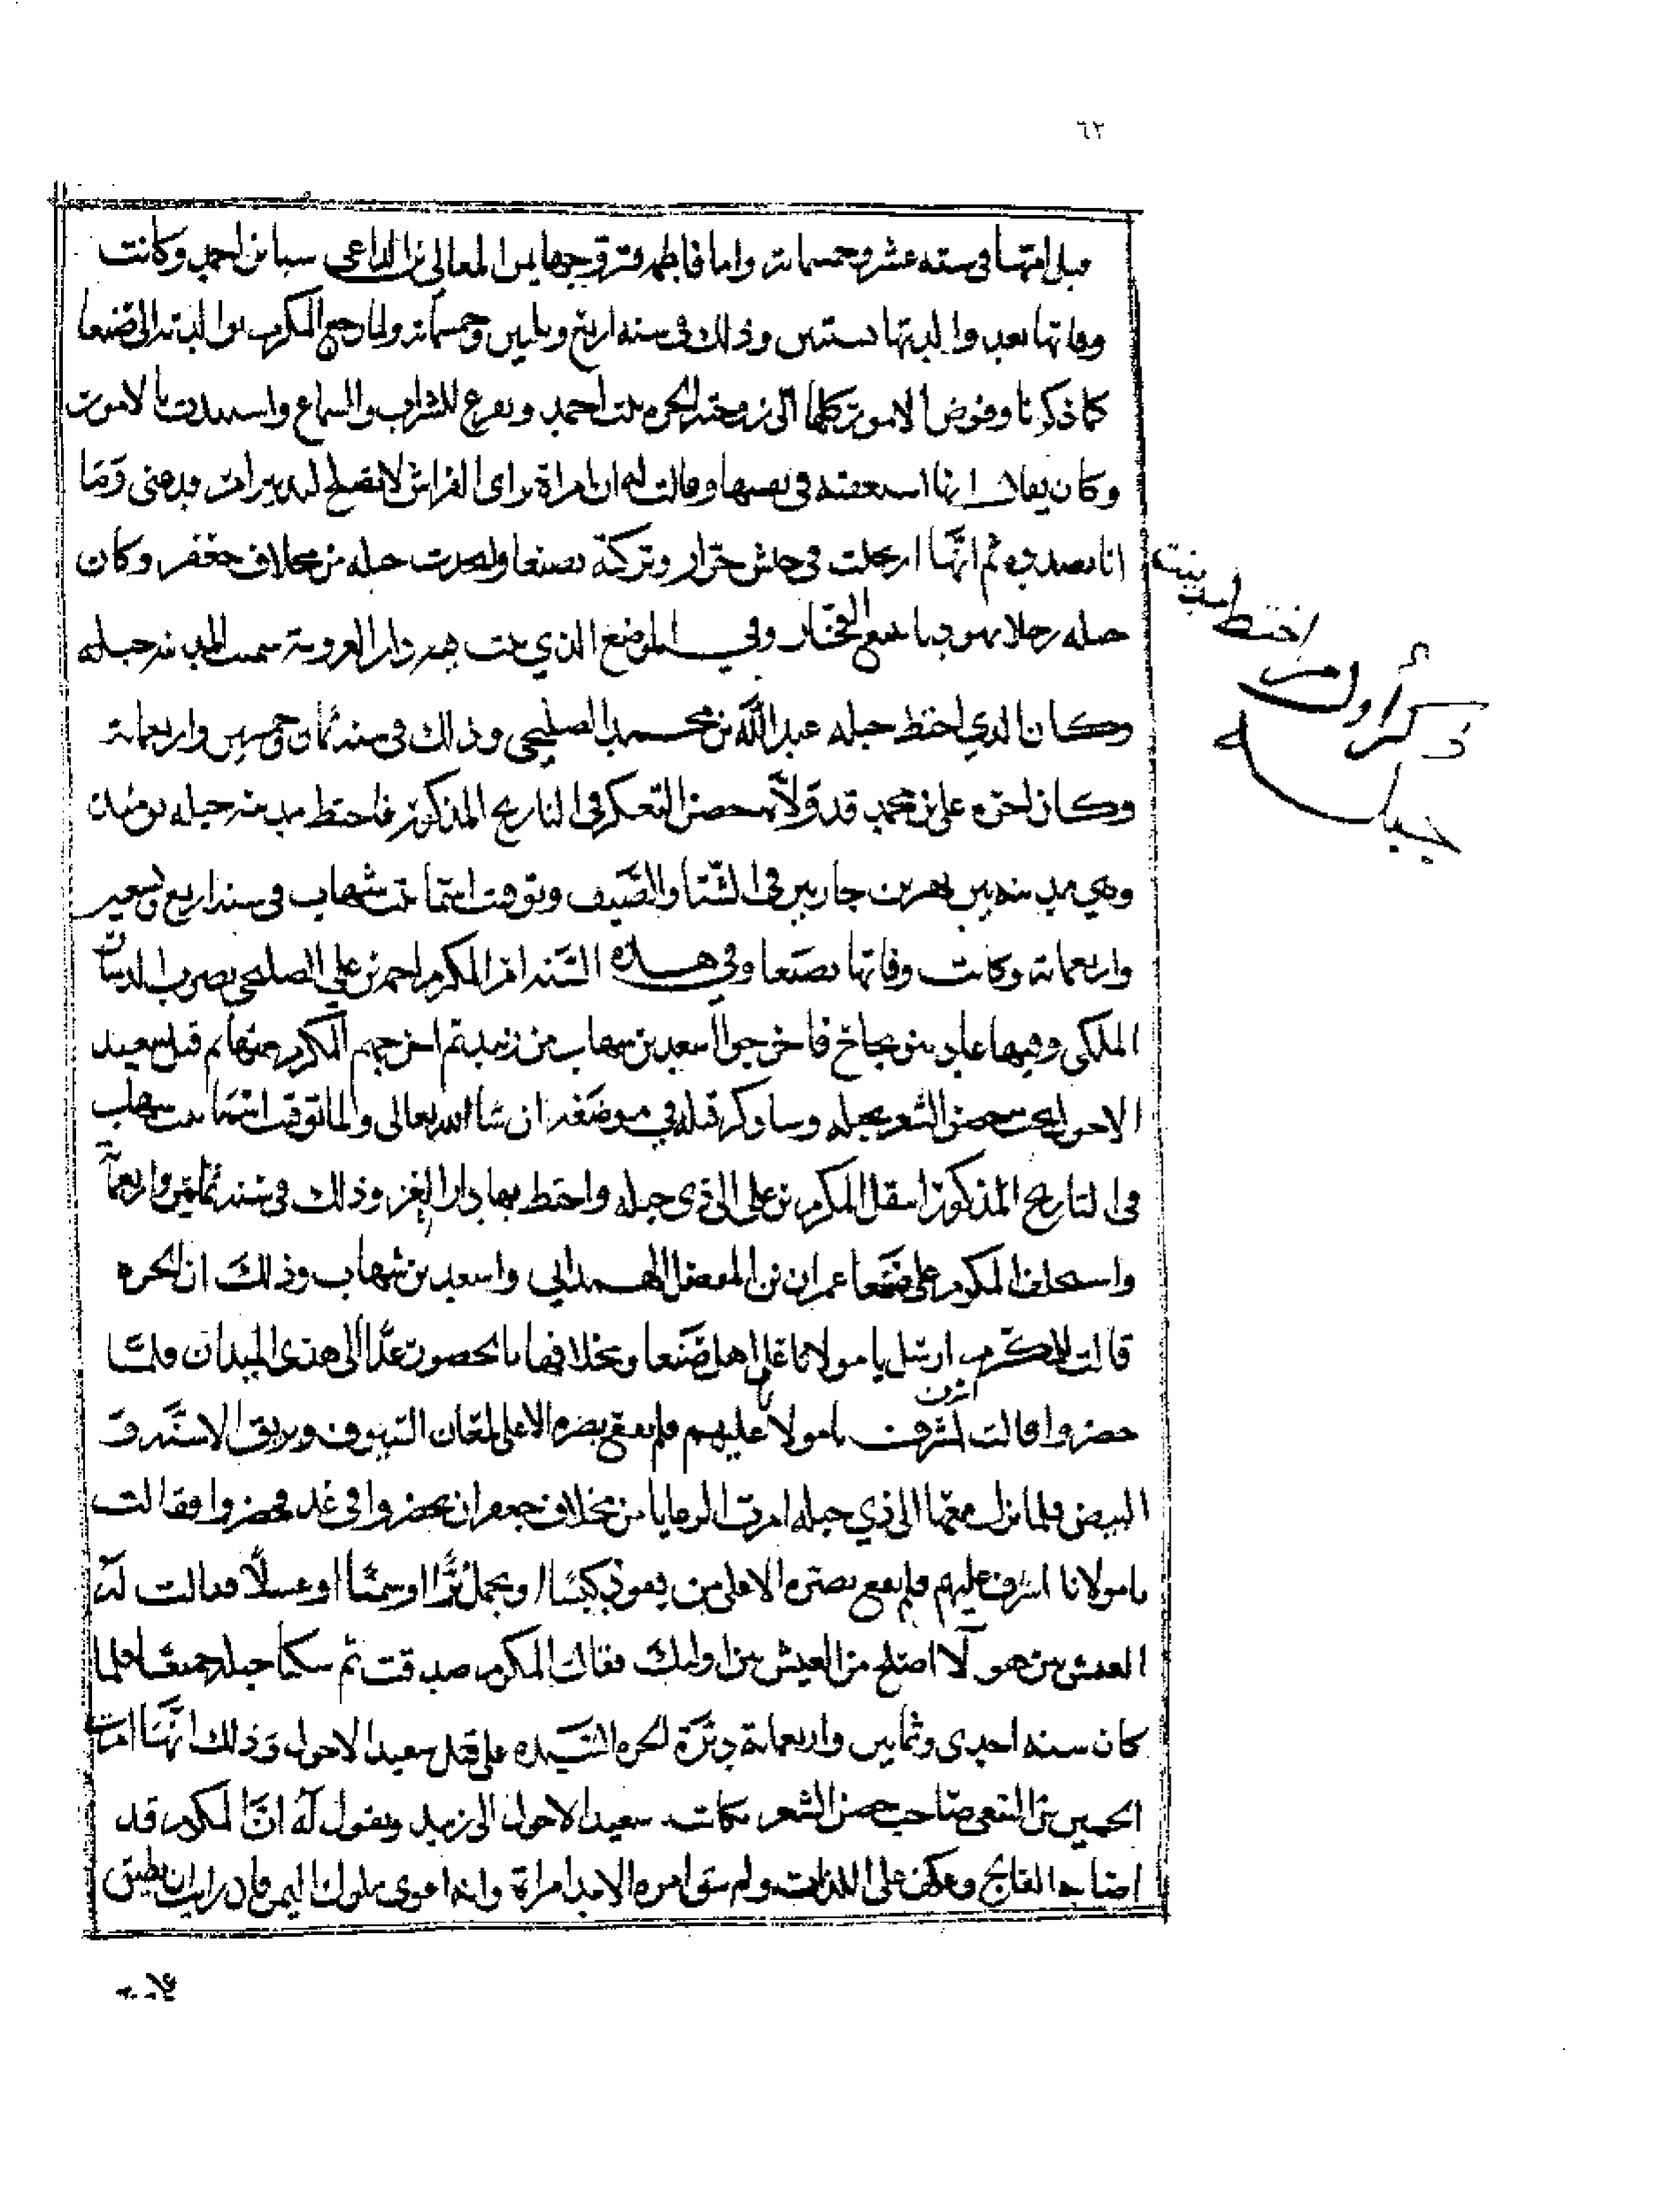 ٦٢
قبل امها في سنة عشر وخمسمائة واما فاطمة فتزوجها المعالي بن الداعي سبا بن احمد وكانت
وفاتها بعد والدتها بسنتين وذلك في سنة اربع وثلثين وخمسمائة ولما رجع المكرم بوالدته الى صنعا
كما ذكرنا وفوض الامور كلها الى زوجته الحره بنت احمد وتفرغ للشراب والسماع واستبدت بالامور
وكان يقال انها استعفته في نفسها وقالت له ان امراة تراد للفراش لا تصلح لتدبير امر فدعني وما
انا بصدده ثم انها ارتحلت في جيش جرار وتركته بصنعا وقصدت جبله من مخلاف جعفر وكان
جبله رجلا يهوديا يبيع الفخار في الموضع الذي بنت فيه دار العز وبه سميت المدينة جبله
وكان الذي اختط جبله عبدالله بن محمد الصليحي وذلك في سنة ثمان وخمسين واربعمائة
وكان اخوه علي بن محمد قد ولاه حصن التعكر في التاريخ المذكور فاختط مدينة جبله يومئذ
وهي مدينة بين نهرين جاريين في الشتا والصيف وتوفيت اسما بنت شهاب في سنة اربع وسبعين
واربعمائة وكانت وفاتها بصنعا وفي هذه السنة امر المكرم احمد بن علي الصليحي بضرب الدينار
الملكي وفيها عاد بنو نجاح فاخرجوا اسعد بن شهاب من زبيد ثم اخرجهم المكرم منها ثم قتل سعيد
الاحول تحت حصن الشعر بحيله وساذكر قتله في موضعه ان شا الله تعالى ولما توفيت اسما بنت شهاب
في التاريخ المذكور انتقل المكرم بن علي الى ذي جبله واختط بها دار العز وذلك في سنة ثمانين واربعمائة
واستخلف المكرم على صنعا عمران بن المفضل الهمداني واسعد بن شهاب وذلك ان الحره
قالت للمكرم ارسل يا مولانا على اهل صنعا ومخلافها بالحضور غدا الى هذي الميدان فلما
حضروا قالت اشرف يا مولانا عليهم فلم يقع بصره الا على لمعان السيوف وبريق الاسنة
البيض فلما نزل معها الى ذي جبله امرت الرعايا من مخلاف جعفر ان يحضروا في غد فحضروا فقالت
يا مولانا اشرف عليهم فلم يقع بصره الا على من يقود كبشا او يحمل برا او سمنا او عسلا فقالت له
العيش بين هولا اصلح من العيش بين اوليك فقال المكرم صدقت ثم سكنا جبله جميعا فلما
كان سنة احدى وثمانين واربعمائة دبرت الحره السيده على قتل سعيد الاحول وذلك انها امرت
الحسين بن التبعي صاحب حصن الشعر يكاتب سعيد الاحول الى زبيد ويقول له ان المكرم قد
اصابه الفالج وعكف على اللذات ولم يبق امره الا بيد امراة وانت اقوى ملوك اليمن فان رايت ان تطبق
ذكر اول من
اختط مدينة
جبله